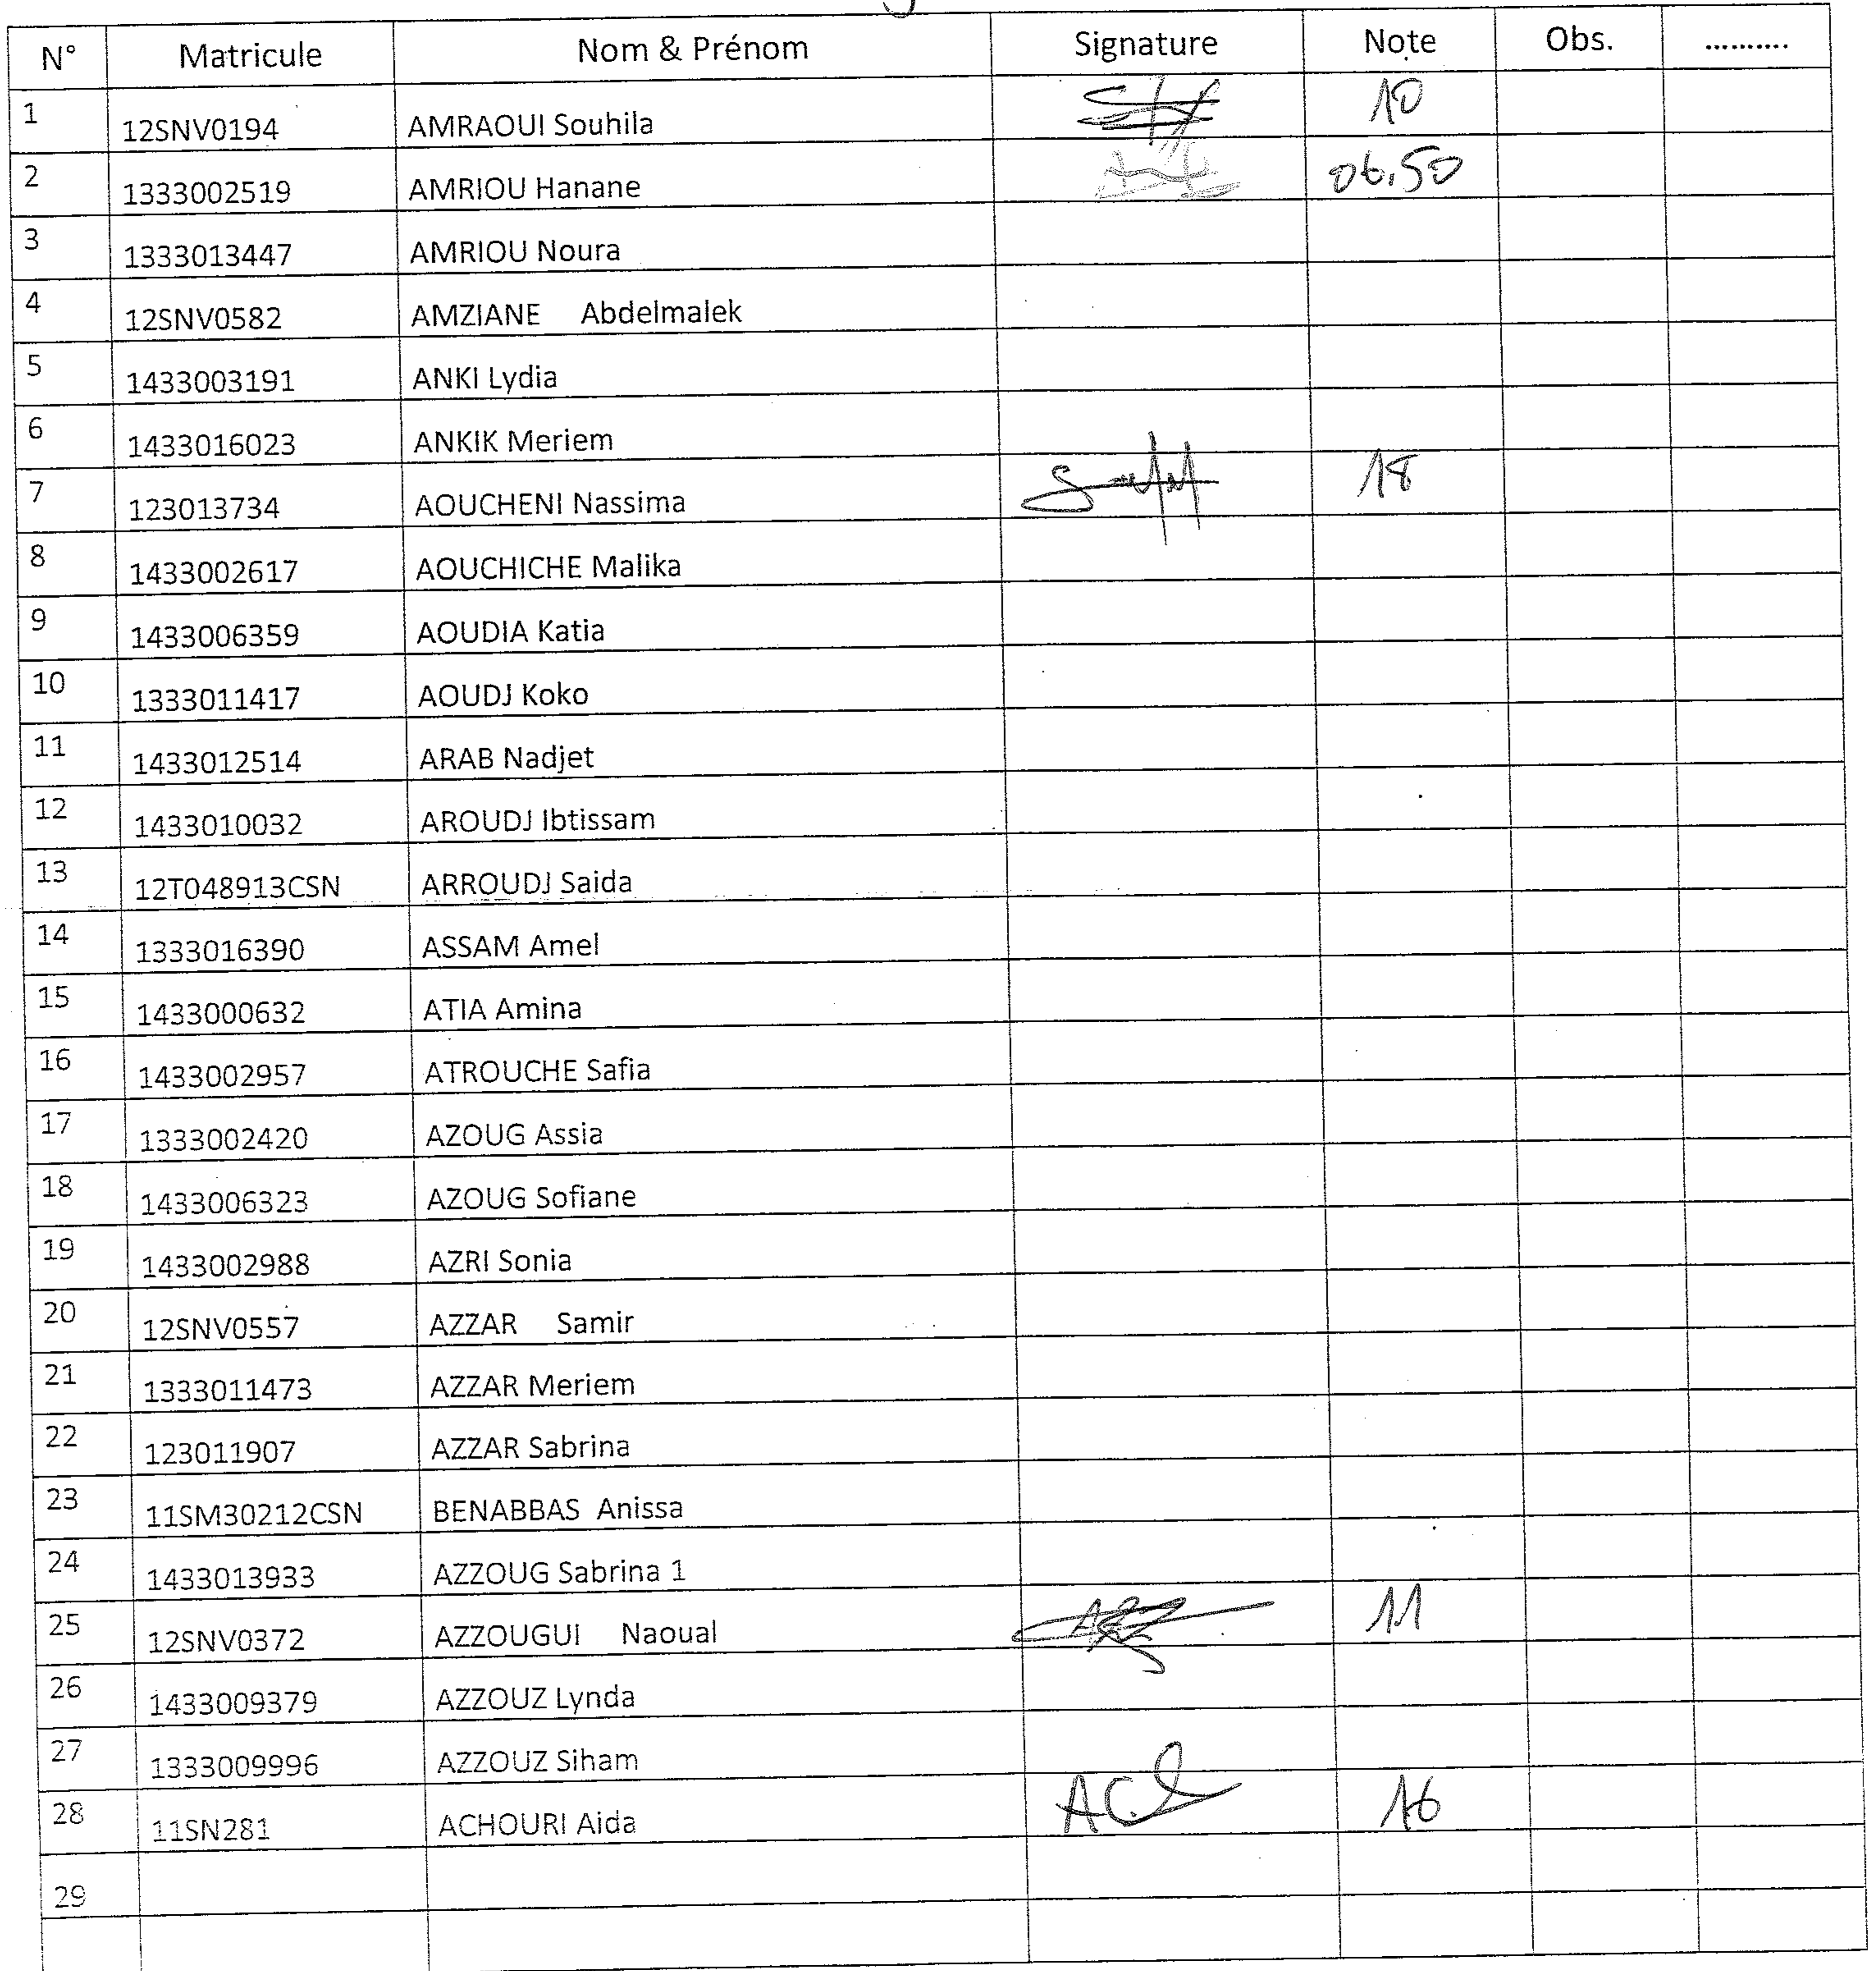 N° Matricule Nom & Prénom Signature Note Obs. ..........
1 12SNV0194 AMRAOUI Souhila 10
2 1333002519 AMRIOU Hanane 06,50
3 1333013447 AMRIOU Noura
4 12SNV0582 AMZIANE Abdelmalek
5 1433003191 ANKI Lydia
6 1433016023 ANKIK Meriem
7 123013734 AOUCHENI Nassima 18
8 1433002617 AOUCHICHE Malika
9 1433006359 AOUDIA Katia
10 1333011417 AOUDJ Koko
11 1433012514 ARAB Nadjet
12 1433010032 AROUDJ Ibtissam
13 12T048913CSN ARROUDJ Saida
14 1333016390 ASSAM Amel
15 1433000632 ATIA Amina
16 1433002957 ATROUCHE Safia
17 1333002420 AZOUG Assia
18 1433006323 AZOUG Sofiane
19 1433002988 AZRI Sonia
20 12SNV0557 AZZAR Samir
21 1333011473 AZZAR Meriem
22 123011907 AZZAR Sabrina
23 11SM30212CSN BENABBAS Anissa
24 1433013933 AZZOUG Sabrina 1
25 12SNV0372 AZZOUGUI Naoual 11
26 1433009379 AZZOUZ Lynda
27 1333009996 AZZOUZ Siham
28 11SN281 ACHOURI Aida 16
29